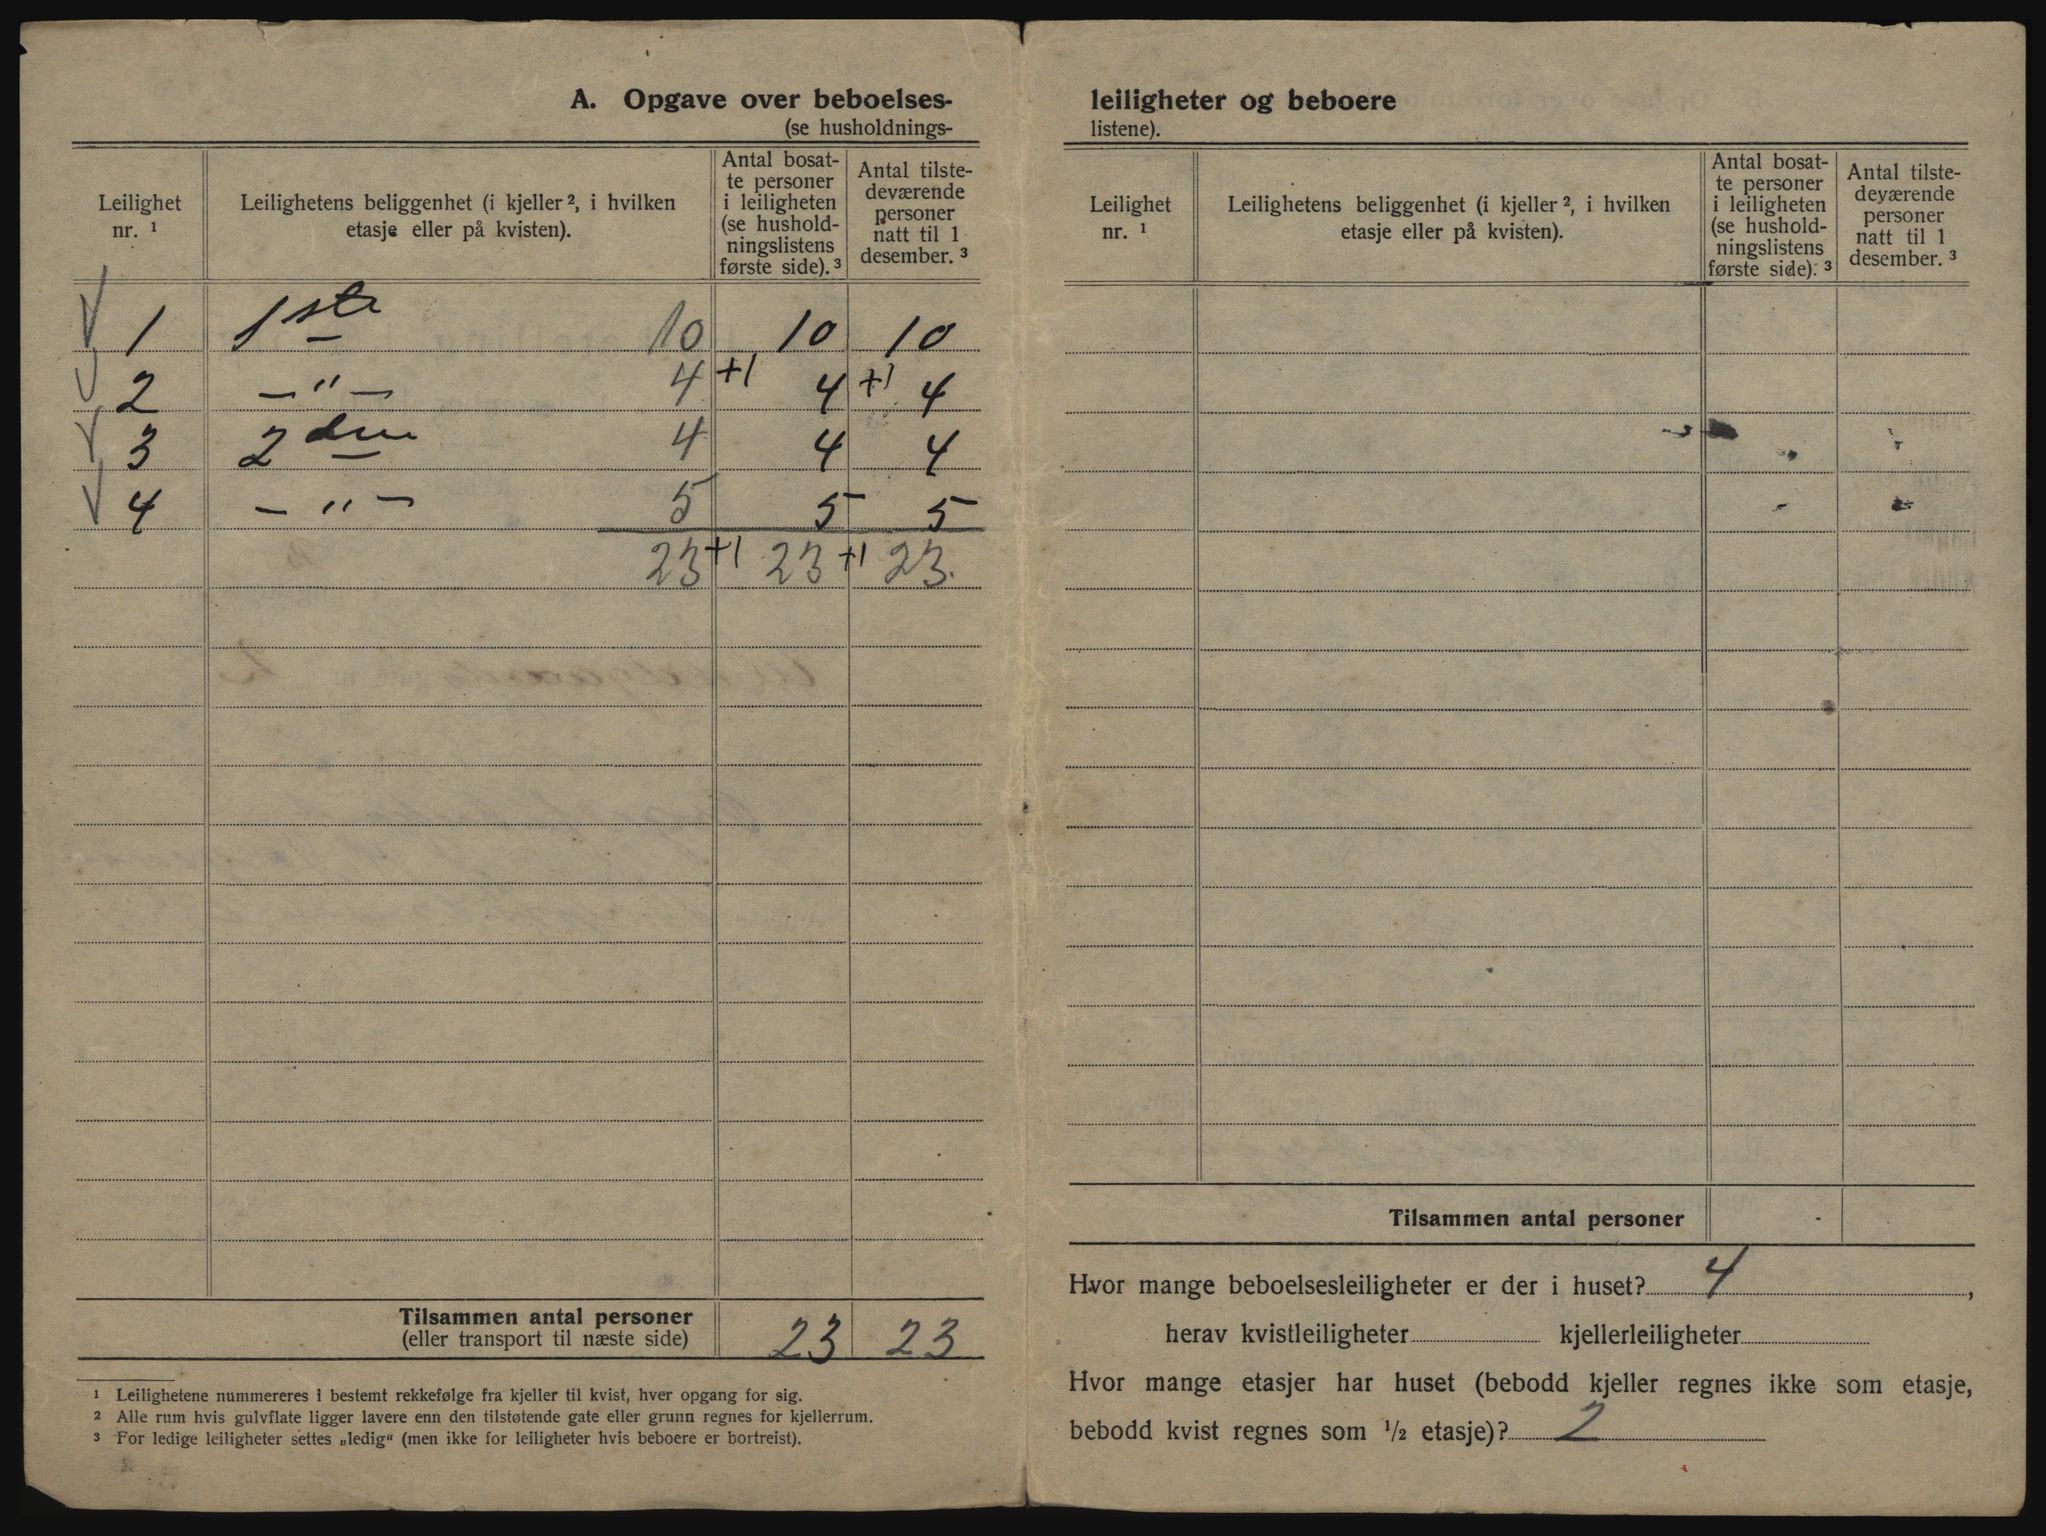 A. Opgave over beboelses-
(se husholdnings-
Leilighet nr. ¹
Leilighetens beliggenhet (i kjeller ², i hvilken etasje eller på kvisten).
Antal bosat-
te personer
i leiligheten
(se hushold-
ningslistens
første side). ³
Antal tilste-
deværende
personer
natt til 1
desember. ³
1 1ste 10 10 10
2 — " — 4 +1 4 +1 4
3 2den 4 4 4
4 — " — 5 5 5
23 +1 23 +1 23.
Tilsammen antal personer
(eller transport til næste side) 23 23
¹ Leilighetene nummereres i bestemt rekkefølge fra kjeller til kvist, hver opgang for sig.
² Alle rum hvis gulvflate ligger lavere enn den tilstøtende gate eller grunn regnes for kjellerrum.
³ For ledige leiligheter settes „ledig“ (men ikke for leiligheter hvis beboere er bortreist).
leiligheter og beboere
listene).
Leilighet nr. ¹
Leilighetens beliggenhet (i kjeller ², i hvilken etasje eller på kvisten).
Antal bosat-
te personer
i leiligheten
(se hushold-
ningslistens
første side). ³
Antal tilste-
deværende
personer
natt til 1
desember. ³
Tilsammen antal personer
Hvor mange beboelsesleiligheter er der i huset? 4,
herav kvistleiligheter kjellerleiligheter
Hvor mange etasjer har huset (bebodd kjeller regnes ikke som etasje,
bebodd kvist regnes som ½ etasje)? 2